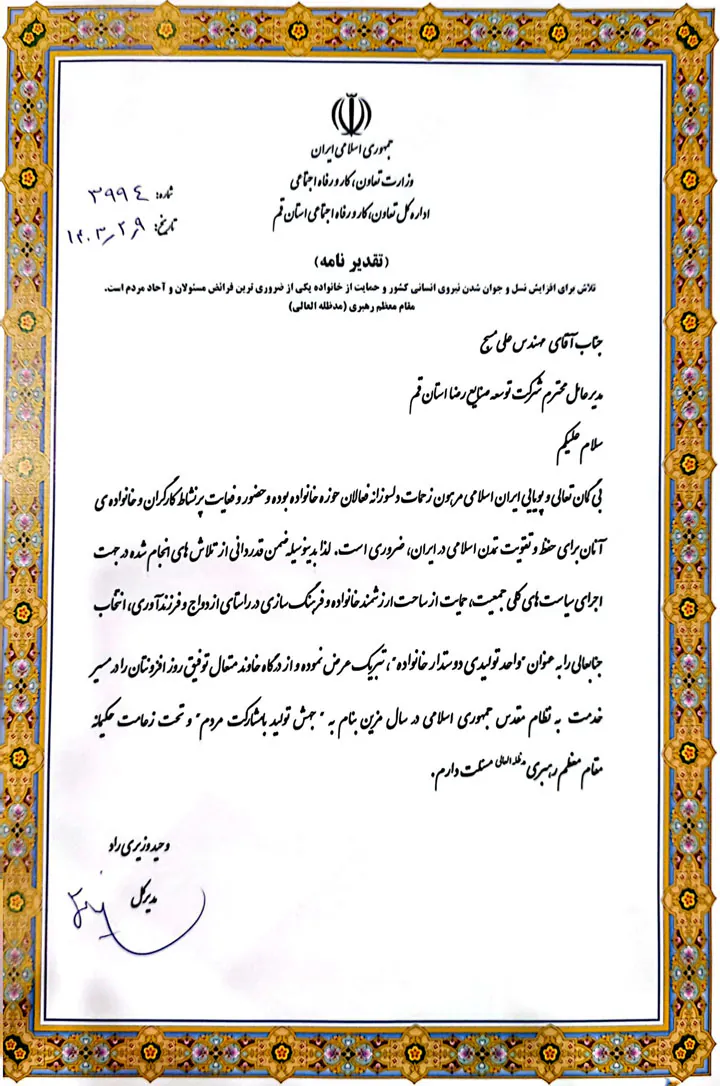 جمهوری اسلامی ایران
وزارت تعاون، کار و رفاه اجتماعی
اداره کل تعاون، کار و رفاه اجتماعی استان قم
شماره: ۳۹۹۴
تاریخ: ۱۴۰۳/۲/۹
(تقدیر نامه)
تلاش برای افزایش نسل و جوان شدن نیروی انسانی کشور و حمایت از خانواده یکی از ضروری ترین فرائض مسئولان و آحاد مردم است.
مقام معظم رهبری (مدظله العالی)
جناب آقای مهندس علی مسیح
مدیر عامل محترم شرکت توسعه صنایع رضا استان قم
سلام علیکم
بی گمان تعالی و پویایی ایران اسلامی مرهون زحمات دلسوزانه فعالان حوزه خانواده بوده و حضور و فعالیت پرنشاط کارگران و خانواده ی
آنان برای حفظ و تقویت تمدن اسلامی در ایران، ضروری است. لذا بدینوسیله ضمن قدردانی از تلاش های انجام شده در جهت
اجرای سیاست های کلی جمعیت، حمایت از ساحت ارزشمند خانواده و فرهنگ سازی در راستای ازدواج و فرزندآوری، انتخاب
جنابعالی را به عنوان "واحد تولیدی دوستدار خانواده"، تبریک عرض نموده و از درگاه خاوند متعال توفیق روز افزونتان را در مسیر
خدمت به نظام مقدس جمهوری اسلامی در سال مزین بنام به "جهش تولید بامشارکت مردم" و تحت زعامت حکیمانه
مقام معظم رهبری مدظله العالی مسئلت دارم.
وحید وزیری راد
مدیرکل